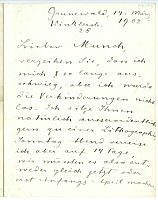 Grunewald, 14. März
Winklerstr. 1902.
25
Lieber Munch,
verzeihen Sie, dass ich
mich so lange aus-
schwieg, aber ich wurde
die Verhinderungen nicht
los. Ich sitze Ihnen
natürlich ausserordentlich
gern zu einer Lithographie.
Sonntag Abend verreise
ich aber auf 14 Tage,
wir müssten es also ent-
weder gleich jetzt oder
erst Anfangs April machen